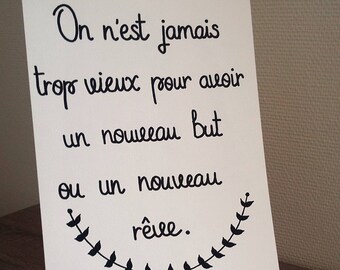 On n'est jamais
trop vieux pour avoir
un nouveau but
ou un nouveau
rêve.